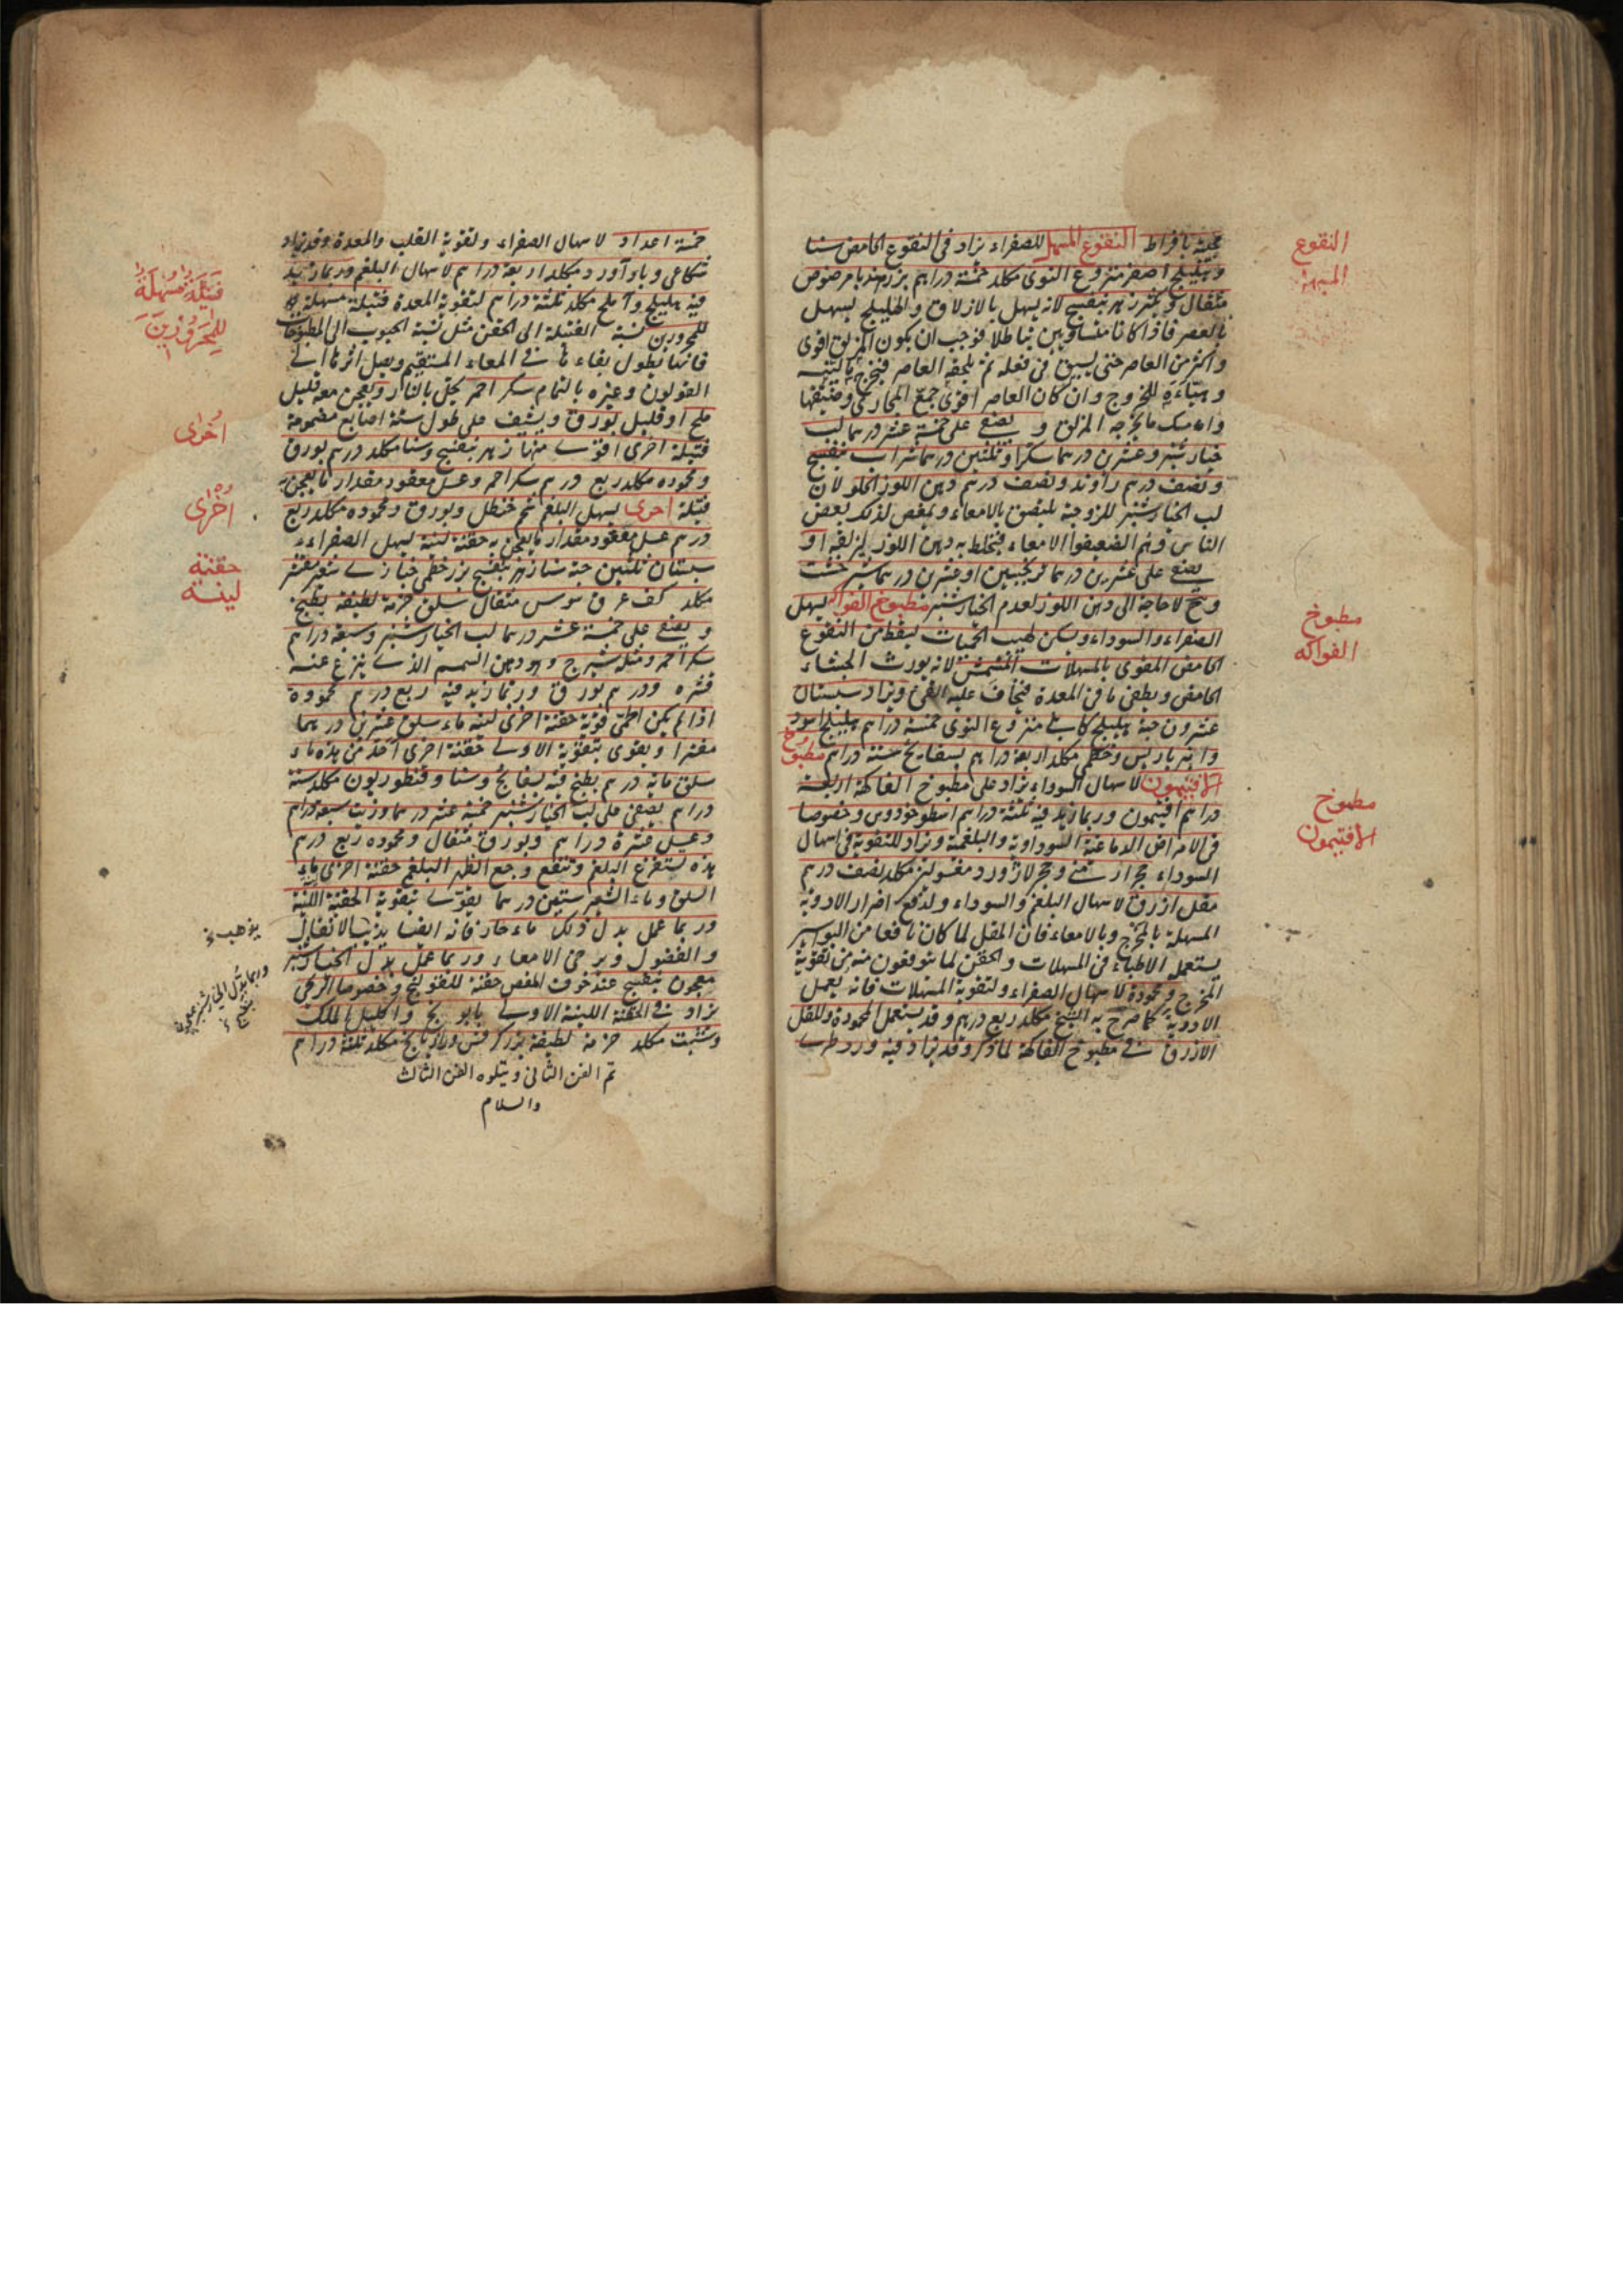 النقوع
المسهل
مطبوخ
الفواكه
مطبوخ
الافتيمون
بافراط النقوع المسهل للصفراء يزاد فى النقوع الحامض سنا
وهليلج اصفر منزوع النوى مكلد خمسة دراهم بزر هندبا مرضوض
مثقال زهر بنفسج لانه يسهل بالازلاق والهليلج يسهل
بالعصر فاذا كانا متساويين بطلا فوجب ان يكون المزلق اقوى
واكثر من العاصر حتى يسبق فى فعله ثم يلحقه العاصر فيخرج
للخروج وان كان العاصر اقوى جمع المجارى وضيقها
وامسك ما يخرجه المزلق و يصفى على خمسة عشر درهما لب
خيار شنبر وعشرين درهما سكرا وثلثين درهما شراب بنفسج
ونصف درهم راوند ونصف درهم دهن اللوز الحلو لان
لب الخيار شنبر للزوجته يلتصق بالامعاء ويمغص لذلك بعض
الناس وهم الضعيفوا الامعاء فيخلط به دهن اللوز ليزلقه او
يصفى على عشرين درهما ترنجبين او عشرين درهما شير خشت
وح لا حاجة الى دهن اللوز لعدم الخيار شنبر مطبوخ الفواكه يسهل
الصفراء والسوداء ويسكن لهيب الحميات يسقط من النقوع
الحامض المقوى بالمسهلات المشمش لانه يورث الجشاء
الحامض ويطفى ما فى المعدة فيخاف عليه القئ ويزاد سبستان
عشرون حبة هليلج كابلى منزوع النوى خمسة دراهم هليلج اسود
وانبرباريس وخطمى مكلد اربعة دراهم بسفايج ستة دراهم مطبوخ
الافتيمون لاسهال السوداء يزاد على مطبوخ الفاكهة اربعة
دراهم افتيمون وربما زيد فيه ثلثة دراهم اسطوخودوس وخصوصا
فى الامراض الدماغية السوداوية والبلغمية ويزاد للتقوية فى اسهال
السوداء حجر ارمنى وحجر لازورد مغسولين مكلد نصف درهم
مقل ازرق لاسهال البلغم والسوداء ولدفع اضرار الادوية
المسهلة بالمخرج وبالامعاء فان المقل لما كان نافعا من البواسير
يستعمله الاطباء فى المسهلات والحقن لما يتوقعون منه من تقوية
المخرج ومحمودة لاسهال الصفراء ولتقوية المسهلات فانه يعمل
الادوية كما صرح به الشيخ مكلد ربع درهم وقد يستعمل المحمودة والمقل
الازرق فى مطبوخ الفاكهة لما ذكر وقد يزاد فيه ورد طرى
خمسة اعداد لاسهال الصفراء ولتقوية القلب والمعدة وقد يزاد
شكاعى وباداورد مكلد اربعة دراهم لاسهال البلغم وربما زيد
فيه هليلج واملج مكلد ثلثة دراهم لتقوية المعدة فتيلة مسهلة
للمحرورين نسبة الفتيلة الى الحقن مثل نسبة الحبوب الى المطبوخات
فانها يطول بقاءها فى المعاء المستقيم ويصل اثرها الى
القولون وغيره بالتمام سكر احمر يحل بالنار ويعجن معه قليل
ملح او قليل بورق ويشيف على طول ستة اصابع مضمومة
فتيلة اخرى اقوى منها زهر بنفسج وسنا مكلد درهم بورق
ومحمودة مكلد ربع درهم سكر احمر وعسل معقود مقدار ما يعجن به
فتيلة اخرى يسهل البلغم شحم حنظل وبورق ومحموده مكلد ربع
درهم عسل معقود مقدار ما يعجن به حقنة لينة يسهل الصفراء
سبستان ثلثين حبة سنا زهر بنفسج بزر خطمى خبازى شعير مقشر
مكلد كف عرق سوس مثقال سلق حزمة لطيفة يطبخ
و يصفى على خمسة عشر درهما لب الخيار شنبر وسبعة دراهم
سكر احمر ومثله شيرج وهو دهن السمسم الذى ينزع عنه
قشره ودرهم بورق وربما زيد فيه ربع درهم محمودة
اذا لم يكن الحمى قوية حقنة اخرى لينة ماء سلق عشرين درهما
مفترا ويقوى بتقوية الاولى حقنة اخرى احد من هذه ماء
سلق مائة درهم يطبخ فيه بسفايج وسنا وقنطوريون مكلد ستة
دراهم يصفى على لب الخيار شنبر خمسة عشر درهما وزيت سبعة دراهم
وعسل عشرة دراهم وبورق مثقال ومحموده ربع درهم
هذه يستفرغ البلغم وتنفع وجع الظهر البلغمى حقنة اخرى ماء
السلق وماء الشعير ستين درهما يقوى بتقوية الحقنة اللينة
وربما عمل بدل ذلك ماء حار فانه ايضا يذيب الاثفال
والفضول ويرخى الامعاء وربما عمل بدل الخيار شنبر
معجون بنفسج عند خوف المغص حقنة للقولنج وخصوصا الريحى
يزاد فى الحقنة اللينة الاولى بابونج واكليل الملك
وشبت مكلد حزمة لطيفة بزر كرفس ورازيانج مكلد ثلثة دراهم
تم الفن الثانى ويتلوه الفن الثالث
والسلام
فتيلة مسهلة
للمحرورين
اخرى
اخرى
حقنة
لينة
يذهب